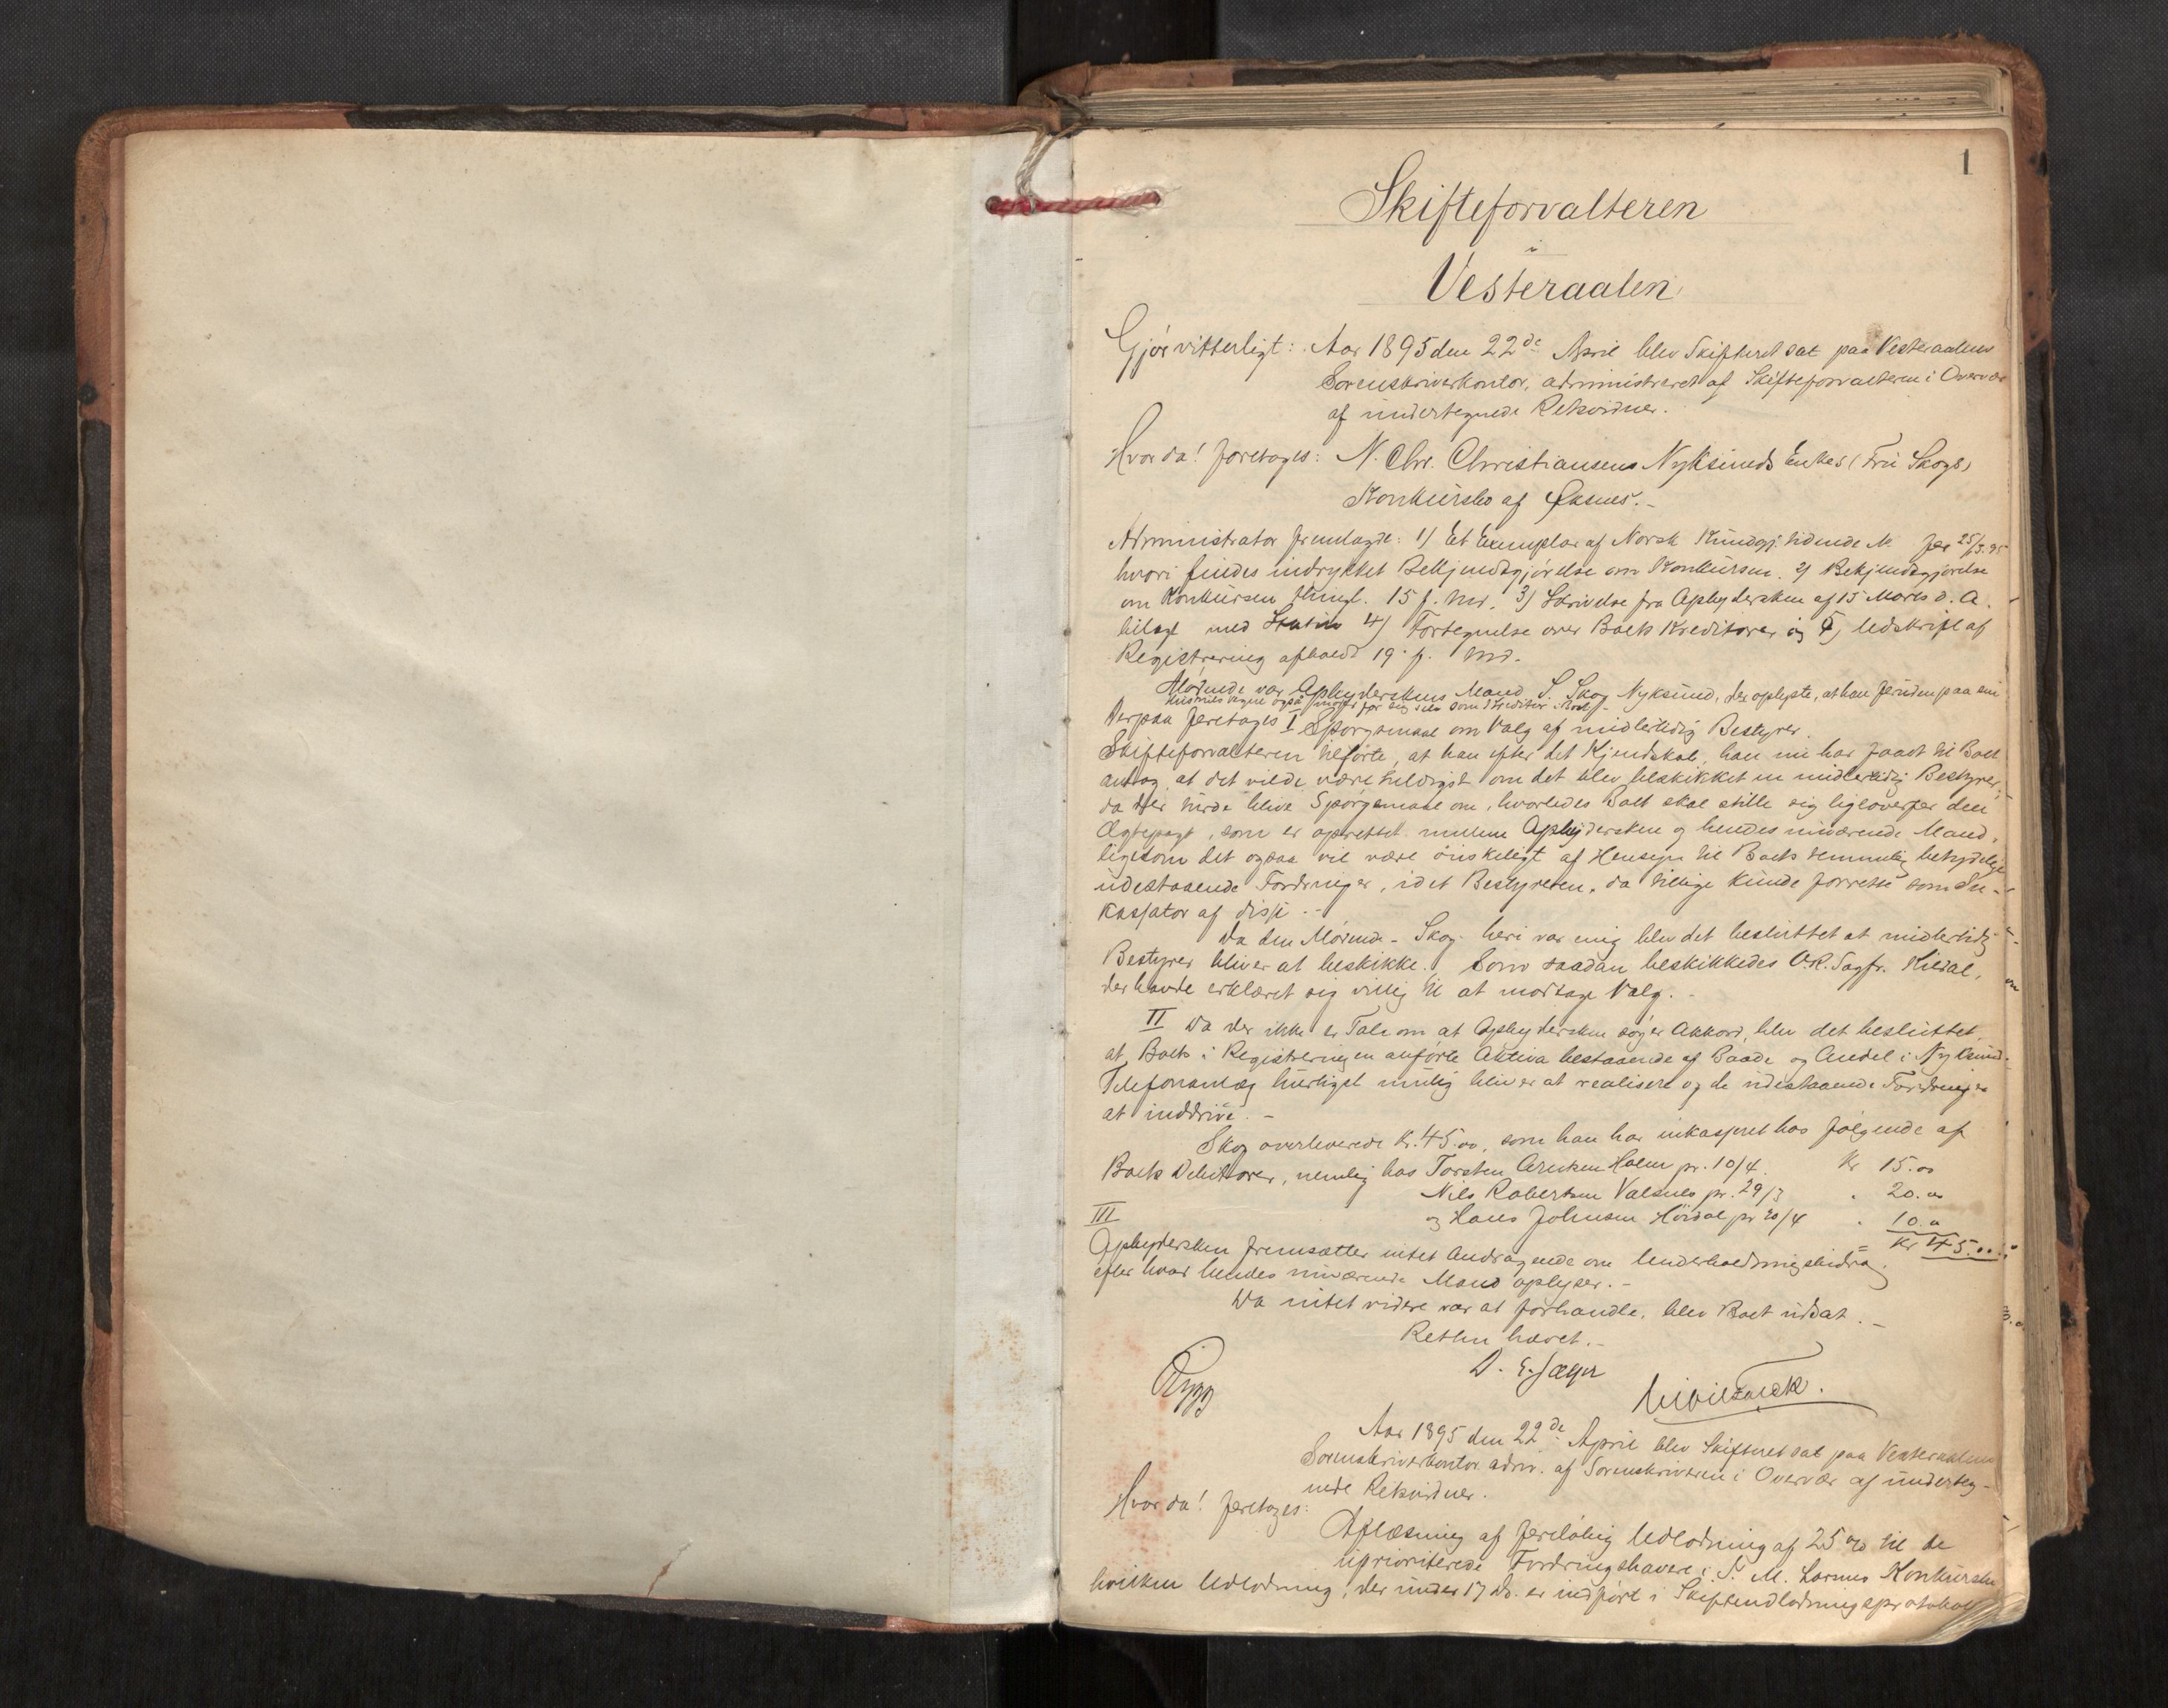 1
Skifteforvalteren
i
Vesteraalen
Gjør vitterligt: Aar 1895 den 22de April blev Skifteret sat paa Vesteraalens
Sorenskriverkontor, administreret af Skifteforvalteren i Overvær
af undertegnede Retsvidner.
Hvor da! foretoges: N. Chr. Christiansens Nyksunds Enkes (Fru Skogs)
Konkursbo af Øksnes.-
Administrator fremlagde: 1) Et Exemplar af Norsk Kundgj. tidende No for 25/3.95
hvori findes indrykket Bekjendtgjørelse om Konkursen. 2) Bekjendtgjørelse
om Konkursen thingl. 15 f. Md. 3) Skrivelse fra Opbydersken af 15 Marts d. A.
bilagt med Status 4) Fortegnelse over Boets Kreditorer og 5) Udskrift af
Registrering afholdt 19. f. Md.
Mødende var Opbyderskens Mand S. Skog Nyksund, der oplyste, at han foruden paa sin
Hustrus Vegne også mødte for sig selv som Kreditor i Boet.
Derpaa foretoges I Spørgsmaal om Valg af midlertidig Bestyrer.
Skifteforvalteren tilførte, at han efter det Kjendskab, han nu har faaet til Boet
antog, at det vilde være heldigst om det blev beskikket en midlertidig Bestyrer,
da der turde blive Spørgsmaal om, hvorledes Boet skal stille sig ligeoverfor den
Ægtepagt, som er oprettet mellem Opbydersken og hendes nuværende Mand,
ligesom det ogsaa vil være ønskeligt af Hensyn til Boets temmelig betydelige
udestaaende Fordringer, idet Bestyreren, da tillige kunde forrette som In-
kassator af disse.-
Da den Mødende - Skog - heri var enig blev det besluttet at midlertidig
Bestyrer bliver at beskikke. Som saadan beskikkedes O.R. Sagfr. Kildal,
der havde erklæret sig villig til at modtage Valg.-
II Da der ikke er Tale om at Opbydersken søger Akkord, blev det besluttet
at Boets i Registreringen anførte Aktiva bestaaende af Baade og Andel i Nyksund
Telefonanlæg hurtigst mulig bliver at realisere og de udestaaende Fordringer
at inddrive.-
Skog overleverede Kr. 45.00, som han har inkasseret hos følgende af
Boets Debitorer, nemlig hos Torsten Holm pr. 10/4. Kr 15.00
Nils Robertsen Valsnes pr. 29/3 " 20.00
og Hans Johnsen pr 20/4 " 10.00
III
= Kr 45.00
Opbydersken fremsætter intet Andragende om Underholdningsbidrag,
efter hvad hendes nuværende Mand oplyser.-
Da intet videre var at forhandle, blev Boet udsat.-
Retten hævet.-
D. E. Jæger
Aar 1895 den 22de April blev Skifteret sat paa Vesteraalens
Sorenskriverkontor adm. af Sorenskriveren i Overvær af underteg-
nede Retsvidner.
Hvor da! foretoges:
Oplæsning af foreløbig Udlodning af 25 % til de
uprioriterede Fordringshavere i S. M. Konkursbo
hvilken Udlodning, der under 17 ds. er indført i Skifteudlodningsprotokol